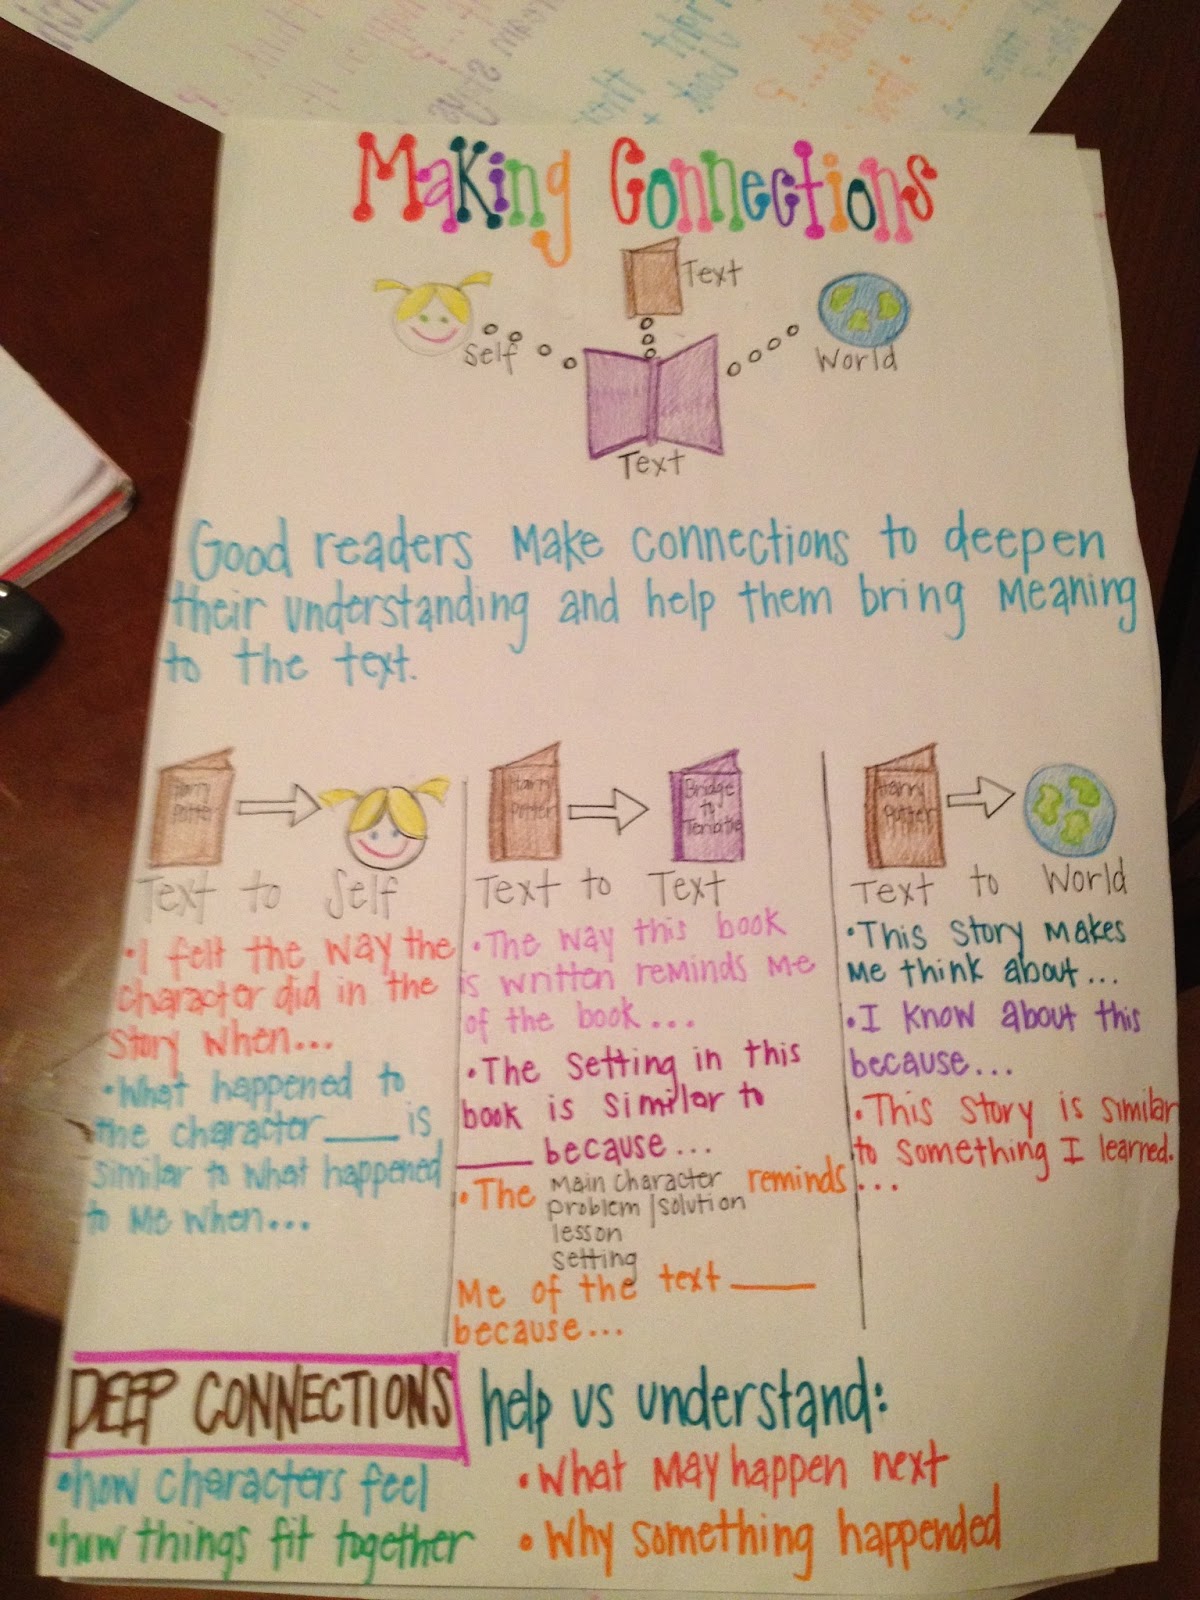 Making Connections
Text
Self
World
Text
Good readers make connections to deepen
their understanding and help them bring meaning
to the text.
Harry
Potter
Text to Self
• I felt the way the
character did in the
story when...
• What happened to
the character ____ is
similar to what happened
to me when...
Harry
Potter
Bridge
to
Text to Text
• The way this book
is written reminds me
of the book...
• The setting in this
book is similar to
____ because...
• The main character reminds
problem/solution
lesson
setting
me of the text ____
because...
Harry
Potter
Text to World
• This story makes
me think about...
• I know about this
because...
• This story is similar
to something I learned.
...
DEEP CONNECTIONS help us understand:
• how characters feel
• how things fit together
• what may happen next
• why something happended